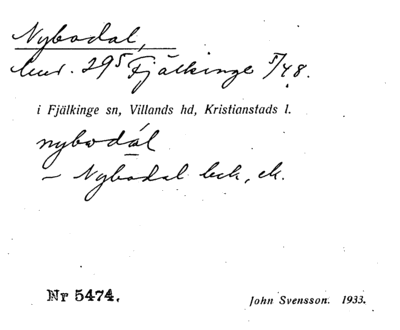 Nybodal,
hmd. 29⁵ Fjälkinge 5/48.
i Fjälkinge sn, Villands hd, Kristianstads l.
nybodál
– Nybodal bck, ek.
Nr 5474.
John Svensson. 1933.